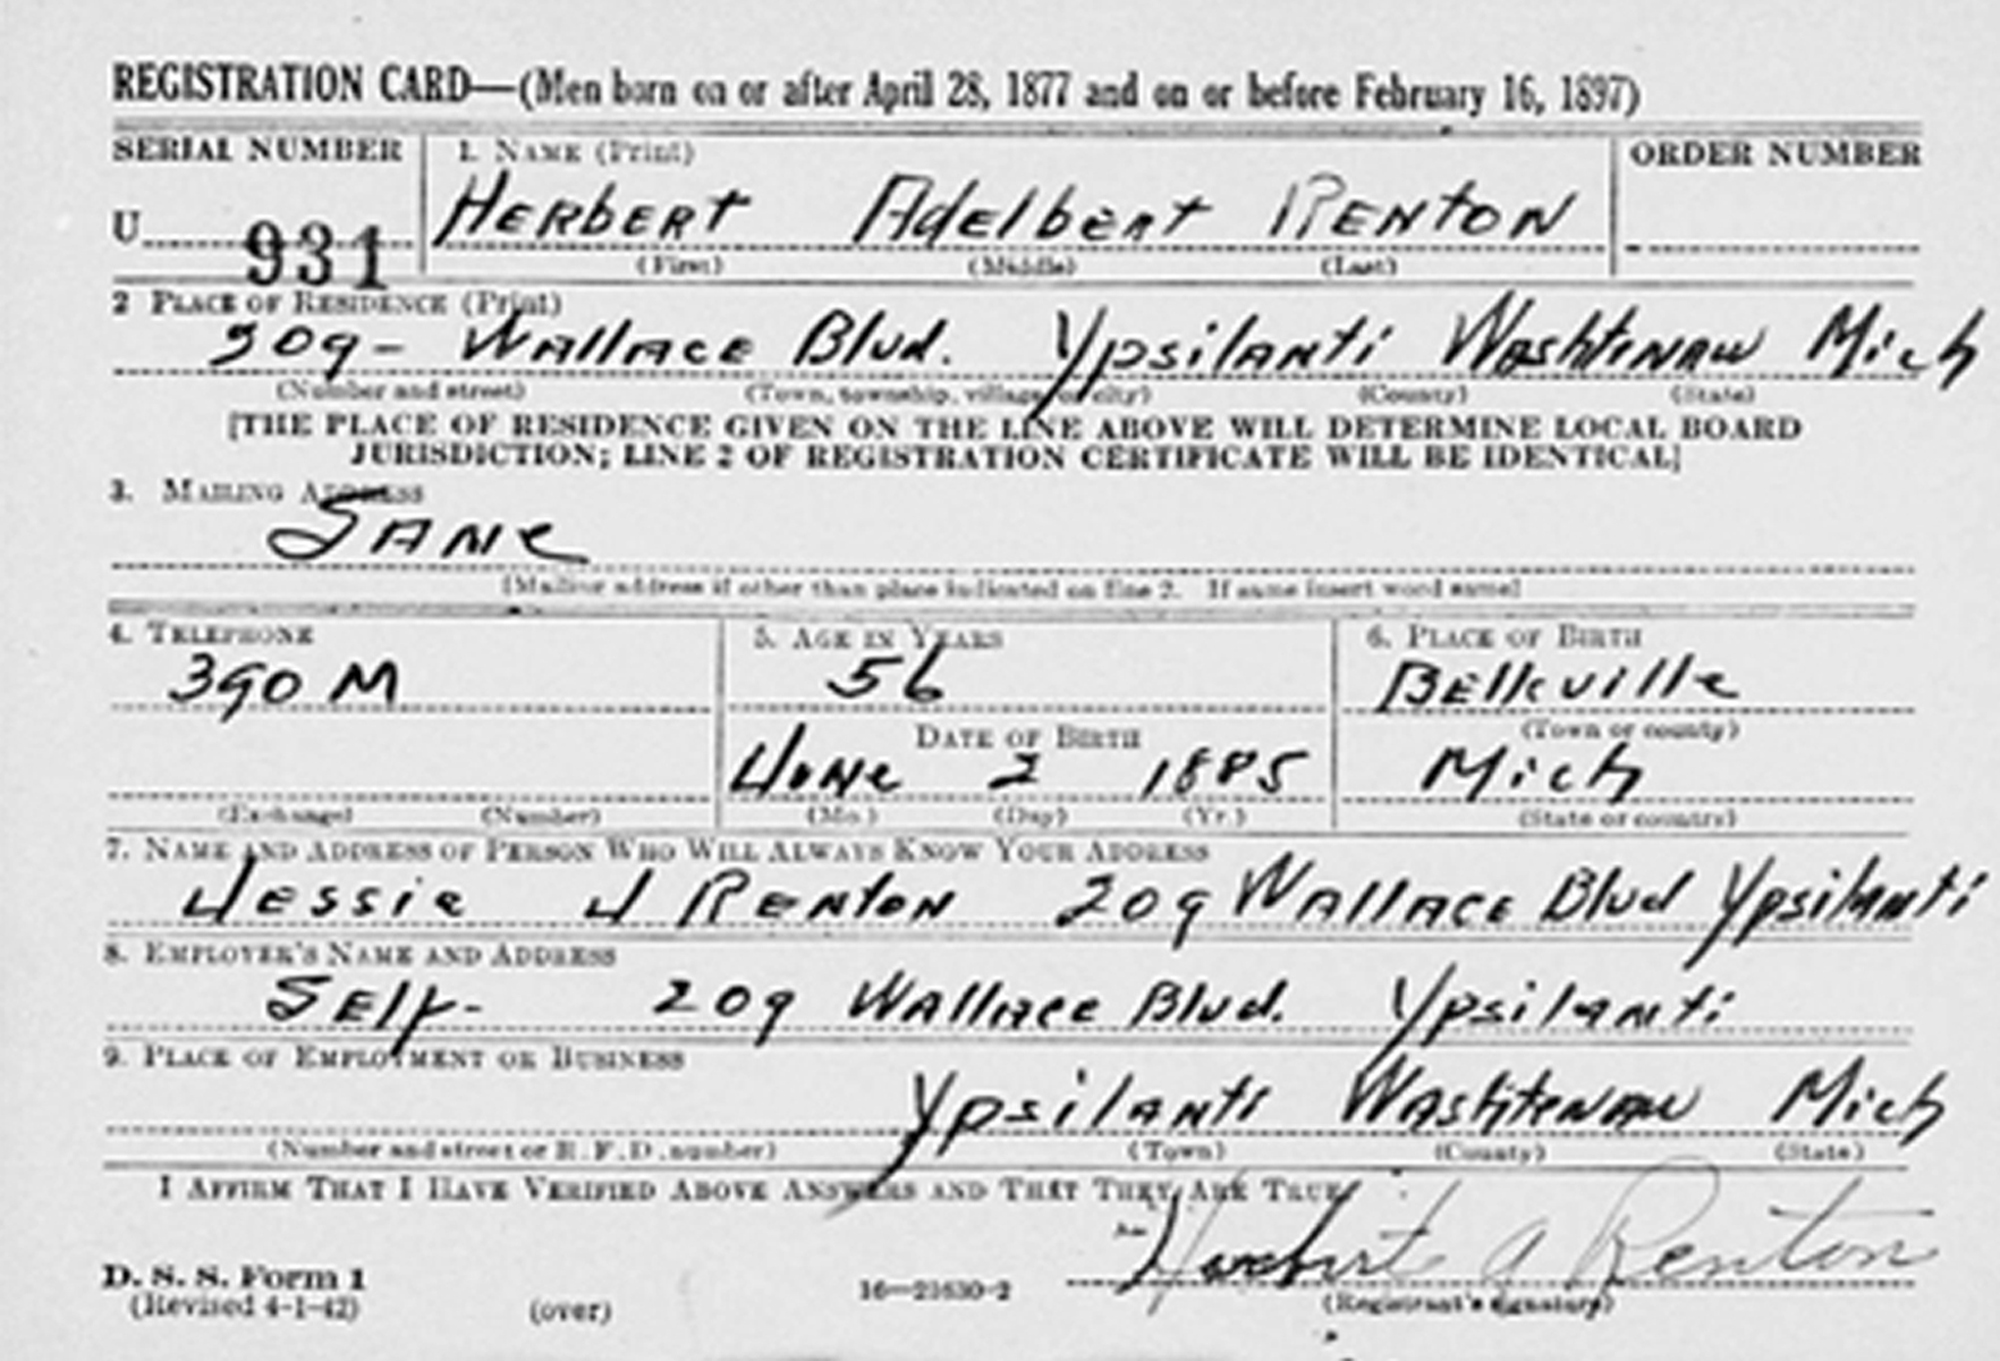 REGISTRATION CARD—(Men born on or after April 28, 1877 and on or before February 16, 1897)
SERIAL NUMBER 1. NAME (Print) ORDER NUMBER
U 931 HERbERT Adelbert RENTON
(First) (Middle) (Last)
2 PLACE OF RESIDENCE (Print)
209 - Wallace Blvd. Ypsilanti Washtenaw Mich
(Number and street) (Town, township, village, or city) (County) (State)
[THE PLACE OF RESIDENCE GIVEN ON THE LINE ABOVE WILL DETERMINE LOCAL BOARD
JURISDICTION; LINE 2 OF REGISTRATION CERTIFICATE WILL BE IDENTICAL]
3. MAILING ADDRESS
SAME
[Mailing address if other than place indicated on line 2. If same insert word same]
4. TELEPHONE 5. AGE IN YEARS 6. PLACE OF BIRTH
390 M 56 Belleville
(Town or county)
DATE OF BIRTH
June 2 1885 Mich
(Exchange) (Number) (Mo.) (Day) (Yr.) (State or country)
7. NAME AND ADDRESS OF PERSON WHO WILL ALWAYS KNOW YOUR ADDRESS
Jessie J Renton 209 Wallace Blvd Ypsilanti
8. EMPLOYER'S NAME AND ADDRESS
Self - 209 Wallace Blvd. Ypsilanti
9. PLACE OF EMPLOYMENT OR BUSINESS
Ypsilanti Washtenaw Mich
(Number and street or R. F. D. number) (Town) (County) (State)
I AFFIRM THAT I HAVE VERIFIED ABOVE ANSWERS AND THAT THEY ARE TRUE.
Herbert A Renton
D. S. S. Form 1
(Revised 4-1-42) (over) 16—21630-2 (Registrant's signature)